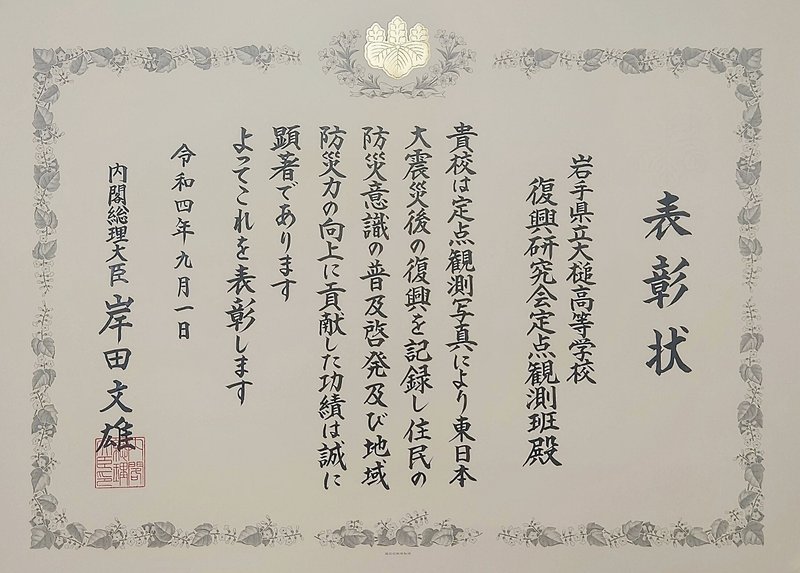 表彰状
岩手県立大槌高等学校
復興研究会定点観測班殿
貴校は定点観測写真により東日本
大震災後の復興を記録し住民の
防災意識の普及啓発及び地域
防災力の向上に貢献した功績は誠に
顕著であります
よってこれを表彰します
令和四年九月一日
内閣総理大臣 岸田文雄